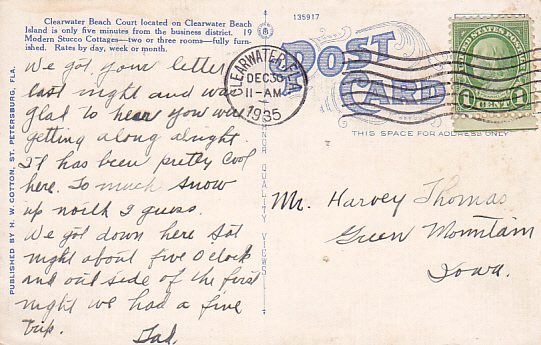 Clearwater Beach Court located on Clearwater Beach
Island is only five minutes from the business district. 19
Modern Stucco Cottages—two or three rooms—fully furn-
ished. Rates by day, week or month.
We got your letter
last night and was
glad to hear you were
getting along alright.
It has been pretty cool
here. To much snow
up north I guess.
We got down here Sat
night about five O clock
and out side of the first
night we had a fine
trip.
Dad.
PUBLISHED BY H. W. COTTON, ST. PETERSBURG, FLA.
135917
CLEARWATER, FLA.
DEC 30
11-AM
1935
POST
CARD
THIS SPACE FOR ADDRESS ONLY
UNITED STATES POSTAGE
1 CENT 1
QUALITY VIEWS
Mr. Harvey Thomas
Green Mountain
Iowa.